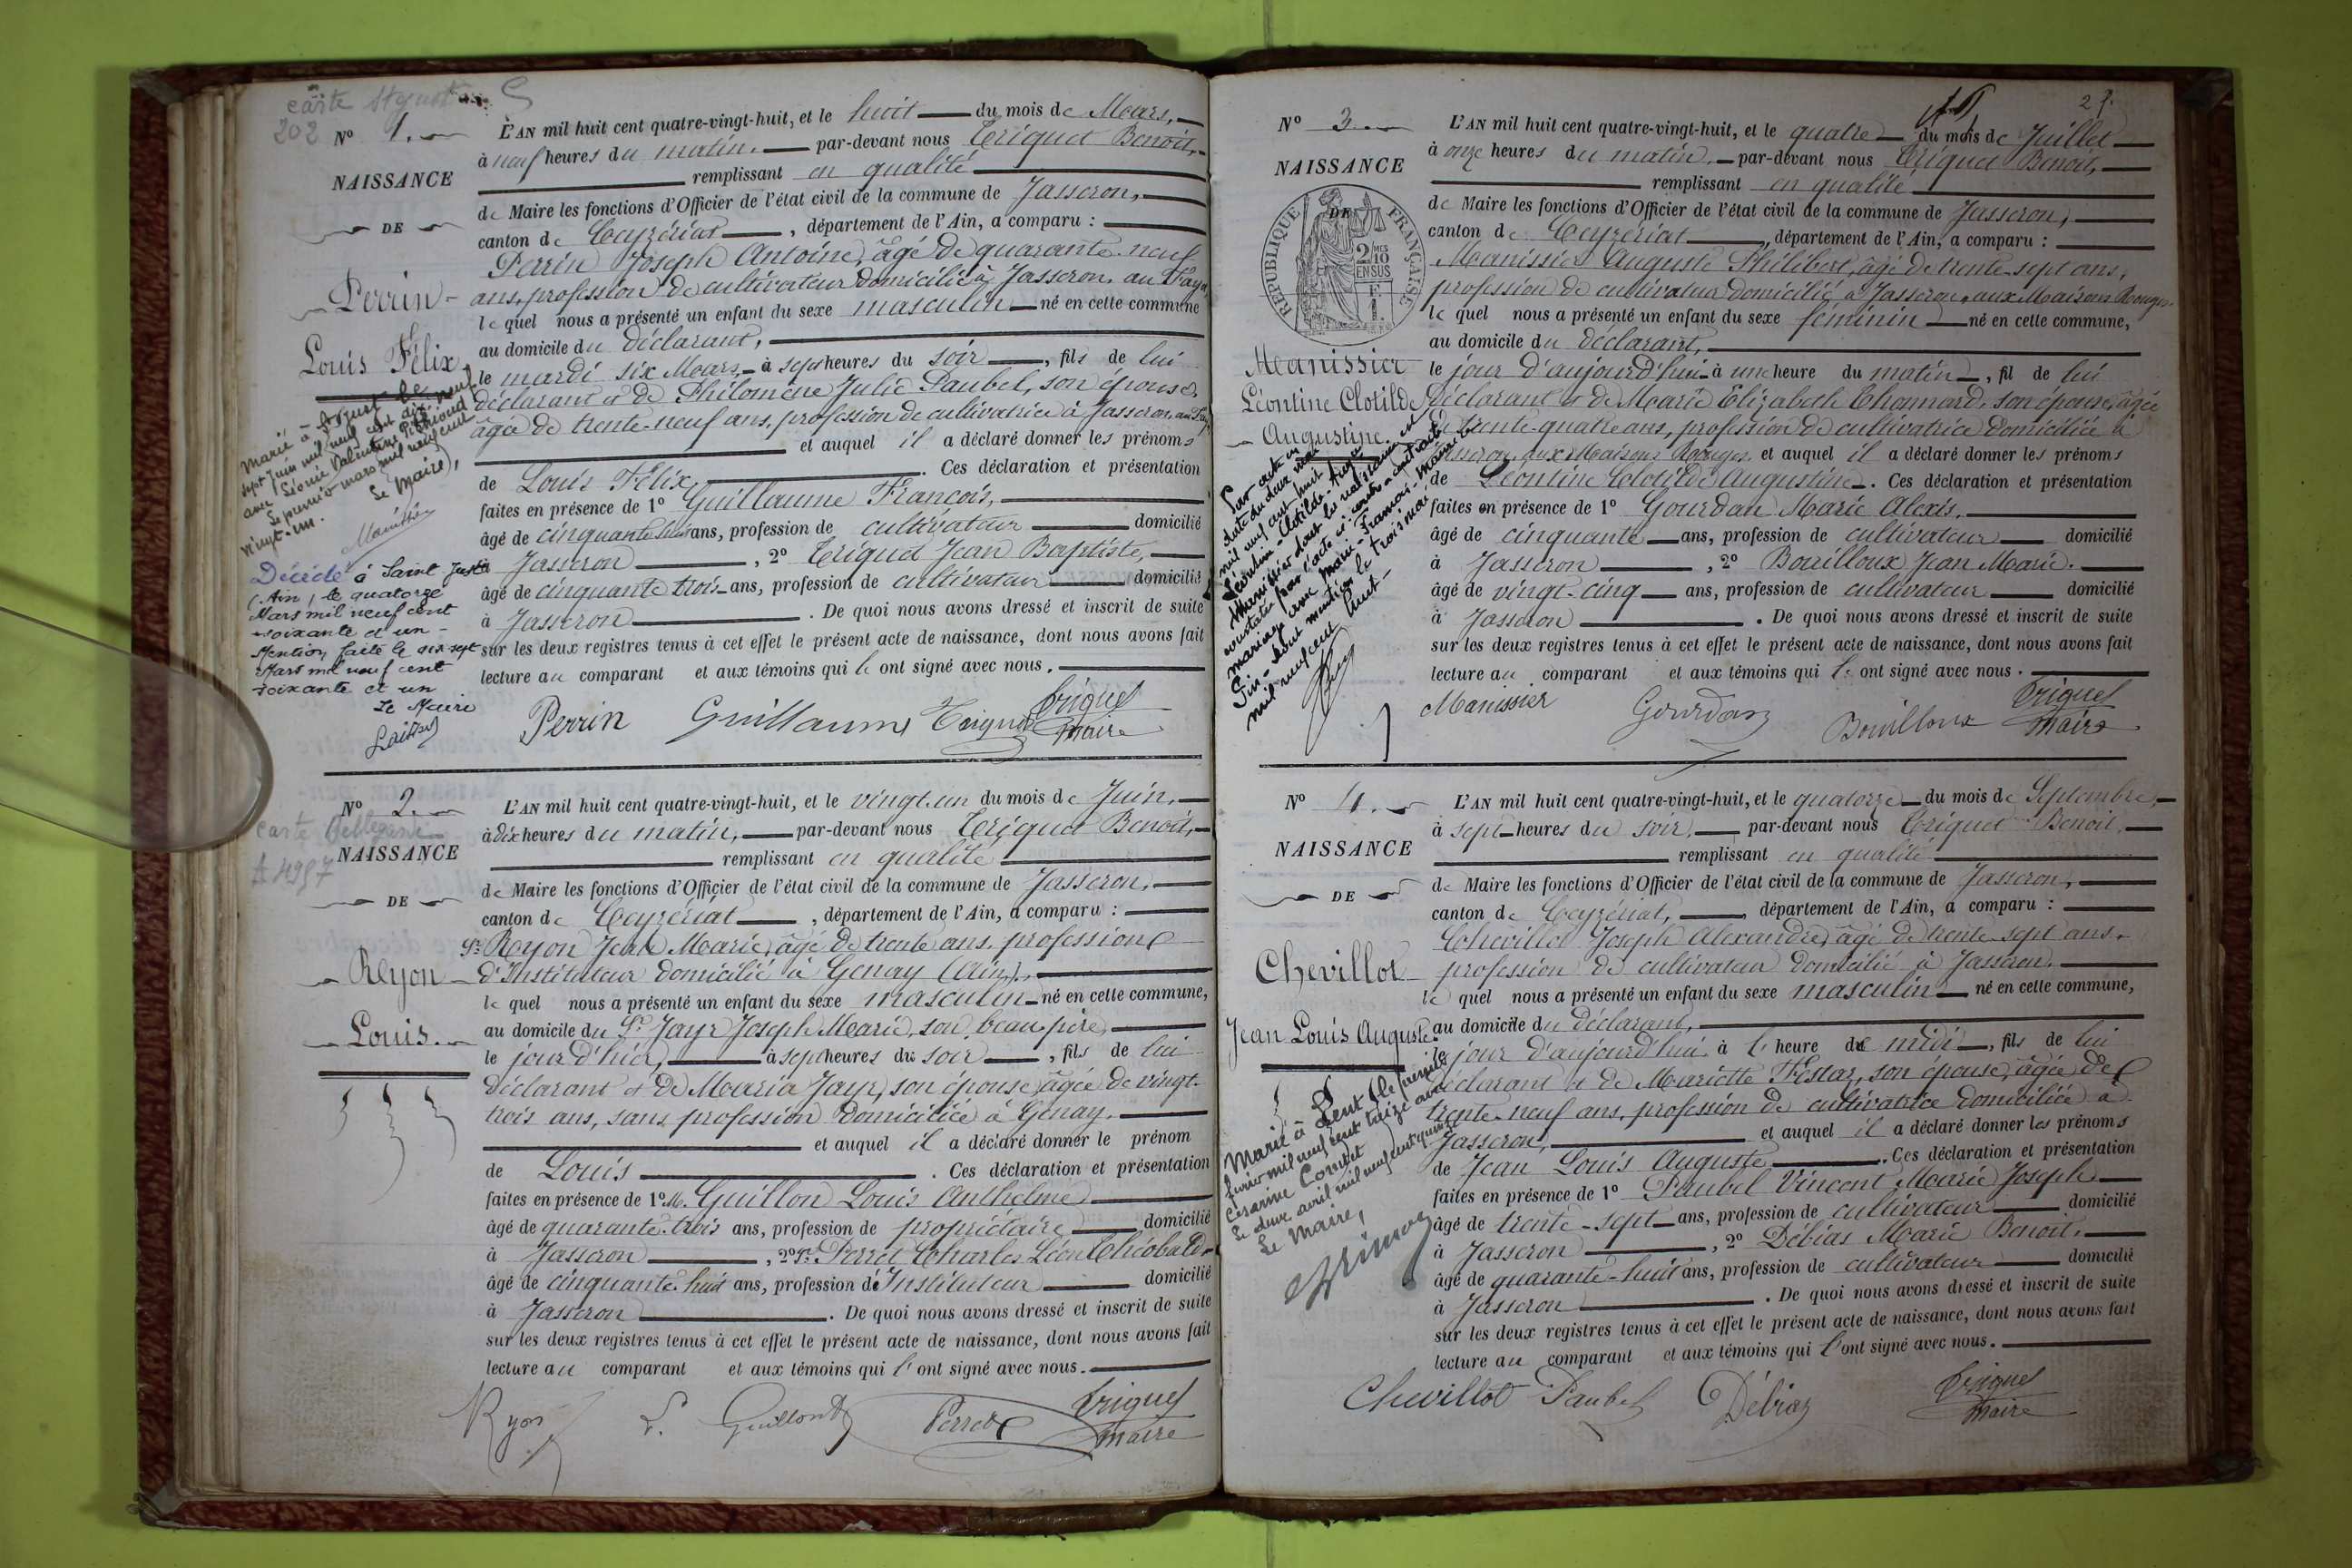 202
N° 1.
NAISSANCE
DE
Perrin
Louis Félix
L'AN mil huit cent quatre-vingt-huit, et le huit du mois de Mars,
à neuf heures du matin, par-devant nous Triquet Benoit,
remplissant en qualité
de Maire les fonctions d'Officier de l'état civil de la commune de Jasseron,
canton de Ceyzériat, département de l'Ain, a comparu :
Perrin Joseph Antoine, âgé de quarante-neuf
ans, profession de cultivateur domicilié à Jasseron, au
lequel nous a présenté un enfant du sexe masculin né en cette commune
au domicile du déclarant,
le mardi six Mars, à sept heures du soir, fils de lui
déclarant et de Philomène Julie Paubel, son épouse,
âgée de trente-neuf ans, profession de cultivatrice à Jasseron, au
et auquel il a déclaré donner les prénoms
de Louis Félix. Ces déclaration et présentation
faites en présence de 1° Guillaume François,
âgé de cinquante ans, profession de cultivateur domicilié
à Jasseron, 2° Triquet Jean Baptiste,
âgé de cinquante trois ans, profession de cultivateur domicilié
à Jasseron. De quoi nous avons dressé et inscrit de suite
sur les deux registres tenus à cet effet le présent acte de naissance, dont nous avons fait
lecture au comparant et aux témoins qui le ont signé avec nous.
Perrin Guillaume Triquet Triquet
Maire
Marié à le
sept Juin mil neuf cent dix-neuf
avec Léonie Valentine
Le premier mars mil neuf cent
vingt-un. Le Maire,
Décédé à Saint Just
(Ain), le quatorze
Mars mil neuf cent
soixante et un -
Mention faite le dix-sept
Mars mil neuf cent
soixante et un
Le Maire
N° 2.
carte Bellegarde
NAISSANCE
DE
Ryon
Louis.
L'AN mil huit cent quatre-vingt-huit, et le vingt-un du mois de Juin,
à dix heures du matin, par-devant nous Triquet Benoit,
remplissant en qualité
de Maire les fonctions d'Officier de l'état civil de la commune de Jasseron,
canton de Ceyzériat, département de l'Ain, a comparu :
Sr Ryon Jean Marie, âgé de trente ans, profession
d'Instituteur domicilié à Genay (Ain),
lequel nous a présenté un enfant du sexe masculin né en cette commune,
au domicile du Sr Jayr Joseph Marie, son beau-père
le jour d'hier, à sept heures du soir, fils de lui
déclarant et de Maria Jayr, son épouse, âgée de vingt-
trois ans, sans profession domiciliée à Genay.
et auquel il a déclaré donner le prénom
de Louis. Ces déclaration et présentation
faites en présence de 1° M. Guillon Louis Anthelme
âgé de quarante-trois ans, profession de propriétaire domicilié
à Jasseron, 2° Sr Perret Charles Léon Théobald
âgé de cinquante-huit ans, profession d'Instituteur domicilié
à Jasseron. De quoi nous avons dressé et inscrit de suite
sur les deux registres tenus à cet effet le présent acte de naissance, dont nous avons fait
lecture au comparant et aux témoins qui l'ont signé avec nous.
Ryon L. Guillon Perret Triquet
Maire
N° 3.
NAISSANCE
DE
RÉPUBLIQUE FRANÇAISE
2/10 EN SUS
Manissier
Léontine Clotilde
Augustine.
L'AN mil huit cent quatre-vingt-huit, et le quatre du mois de Juillet
à onze heures du matin, par-devant nous Triquet Benoit,
remplissant en qualité
de Maire les fonctions d'Officier de l'état civil de la commune de Jasseron,
canton de Ceyzériat, département de l'Ain, a comparu :
Manissier Auguste Philibert, âgé de trente-sept ans,
profession de cultivateur domicilié à Jasseron, aux Maisons Rouges
lequel nous a présenté un enfant du sexe féminin né en cette commune,
au domicile du déclarant,
le jour d'aujourd'hui à une heure du matin, fil de lui
déclarant et de Marie Elizabeth Chonnard, son épouse, âgée
de trente-quatre ans, profession de cultivatrice domiciliée à
Jasseron, aux Maisons Rouges, et auquel il a déclaré donner les prénoms
de Léontine Clotilde Augustine. Ces déclaration et présentation
faites en présence de 1° Gourdan Marie Alexis,
âgé de cinquante ans, profession de cultivateur domicilié
à Jasseron, 2° Bouilloux Jean Marie.
âgé de vingt-cinq ans, profession de cultivateur domicilié
à Jasseron. De quoi nous avons dressé et inscrit de suite
sur les deux registres tenus à cet effet le présent acte de naissance, dont nous avons fait
lecture au comparant et aux témoins qui l'ont signé avec nous.
Manissier Gourdan Bouilloux Triquet
Maire
Par acte en
date du deux mai
mil neuf cent huit
Léontine-Clotilde-
Manissier dont la naissance est
constatée par l'acte ci-contre a contracté
mariage avec Marie-François-
mention le trois mai
mil neuf cent huit -
N° 4.
NAISSANCE
DE
Chevillot
Jean Louis Auguste.
L'AN mil huit cent quatre-vingt-huit, et le quatorze du mois de Septembre,
à sept heures du soir, par-devant nous Triquet Benoit,
remplissant en qualité
de Maire les fonctions d'Officier de l'état civil de la commune de Jasseron,
canton de Ceyzériat, département de l'Ain, a comparu :
Chevillot Joseph Alexandre, âgé de trente-sept ans,
profession de cultivateur domicilié à Jasseron,
lequel nous a présenté un enfant du sexe masculin né en cette commune,
au domicile du déclarant,
le jour d'aujourd'hui à l'heure de midi, fils de lui
déclarant et de Mariette Festaz, son épouse, âgée de
trente-neuf ans, profession de cultivatrice domiciliée à
Jasseron, et auquel il a déclaré donner les prénoms
de Jean Louis Auguste. Ces déclaration et présentation
faites en présence de 1° Paubel Vincent Marie Joseph
âgé de trente-sept ans, profession de cultivateur domicilié
à Jasseron, 2° Débias Marie Benoit.
âgé de quarante-huit ans, profession de cultivateur domicilié
à Jasseron. De quoi nous avons dressé et inscrit de suite
sur les deux registres tenus à cet effet le présent acte de naissance, dont nous avons fait
lecture au comparant et aux témoins qui l'ont signé avec nous.
Chevillot Paubel Débias Triquet
Maire
Marié à Lent le
mil neuf cent treize avec
Césarine Cornet
Le deux avril mil neuf cent quinze
Le Maire,